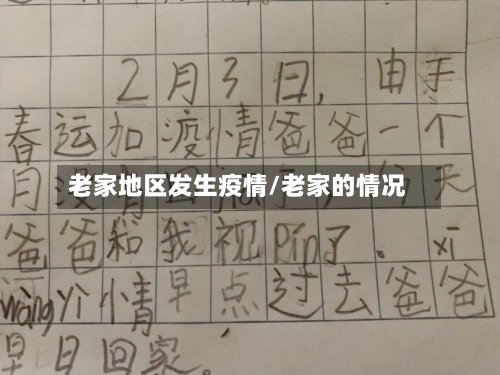 2月3日，由手
春运加疫情爸爸一个
月没有
老家地区发生疫情/老家的情况
天
爸爸和我视pin了。xi
wàng疒情早点过去爸爸
早日回家。